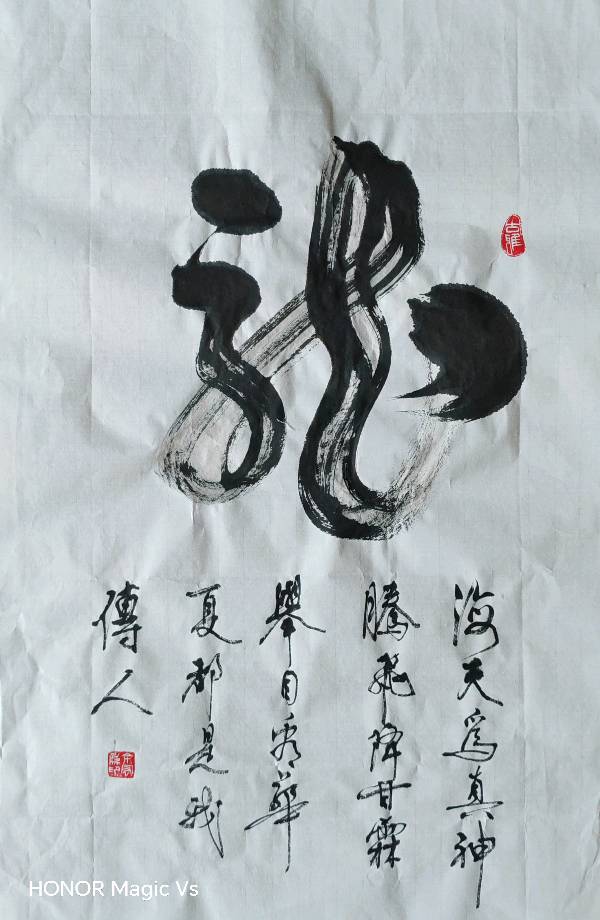 龍
海天為真神
騰飛降甘霖
舉目看華
夏都是我
傳人
HONOR Magic Vs